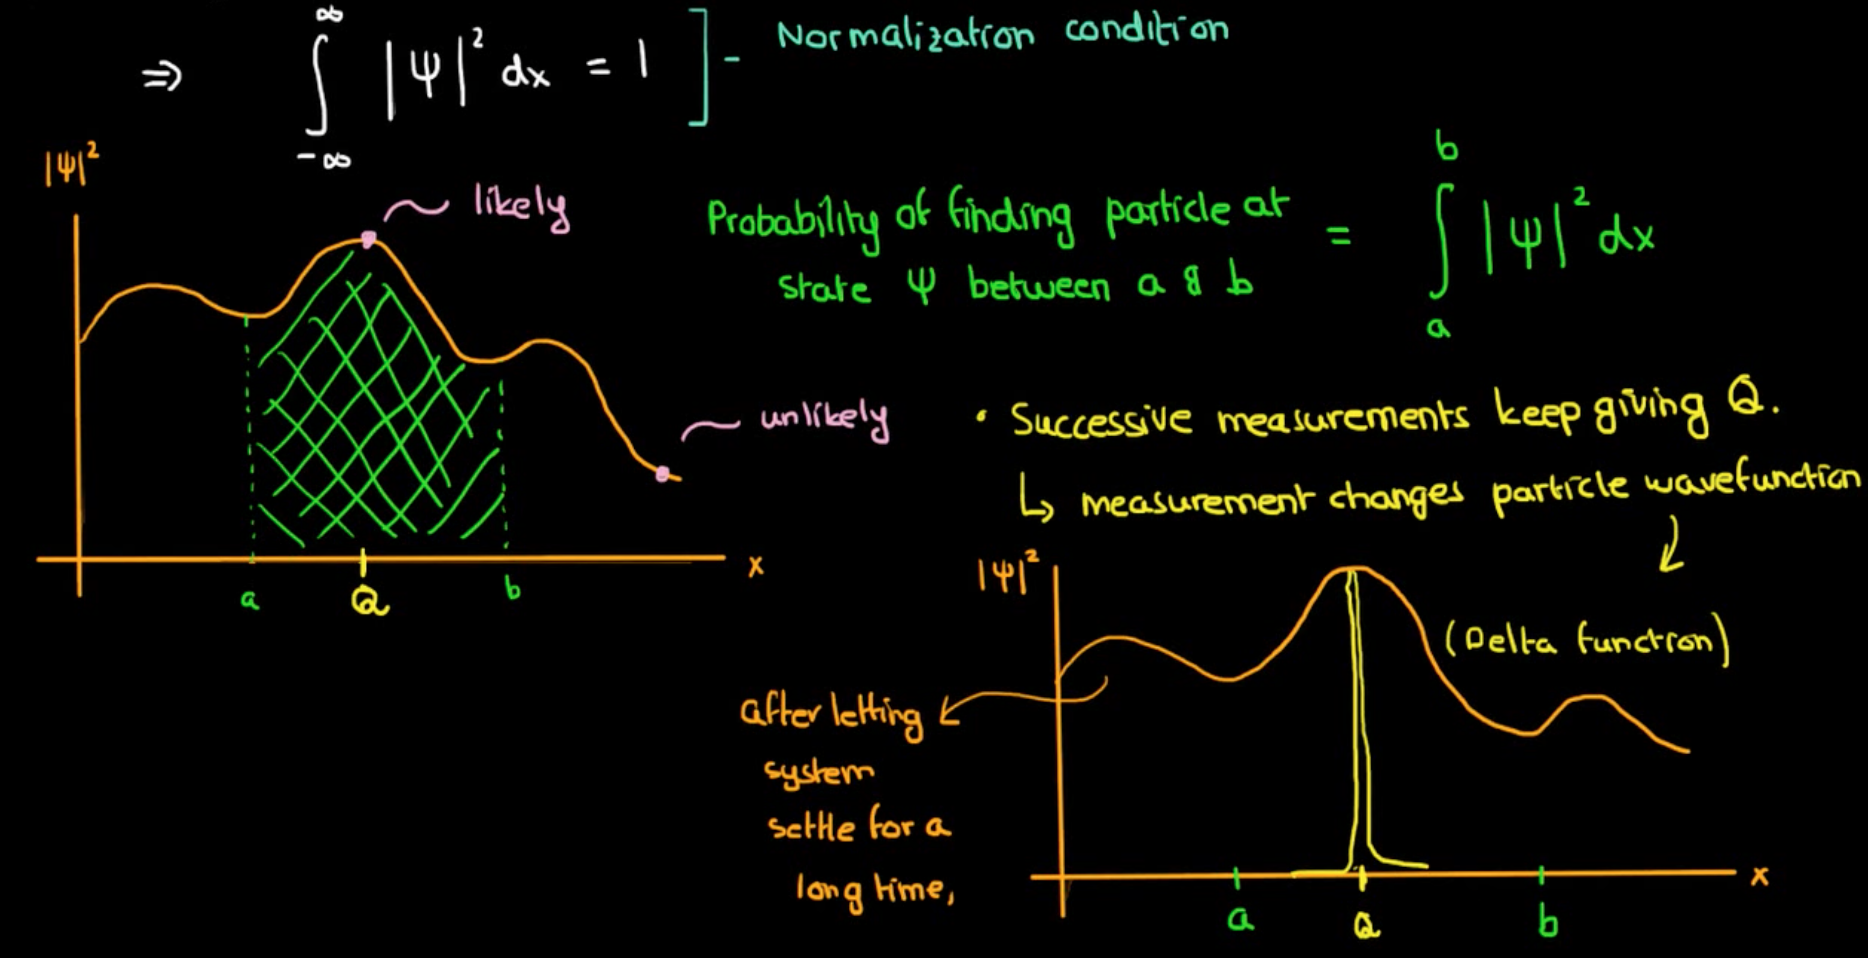 ⇒ ∫_{-∞}^{∞} |Ψ|² dx = 1 ] - Normalization condition
|Ψ|²
likely
Probability of finding particle at
state Ψ between a & b
= ∫_{a}^{b} |Ψ|² dx
unlikely
x
a
Q
b
• Successive measurements keep giving Q.
↳ measurement changes particle wavefunction
↓
(Delta function)
|Ψ|²
after letting
system
settle for a
long time,
x
a
Q
b